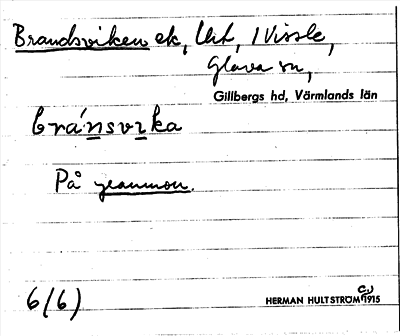 Brandsviken ek, Utt, 1 Vissle,
Glava sn,
Gillbergs hd, Värmlands län
bránsvıka
På
6(6)
HERMAN HULTSTRÖM 1915